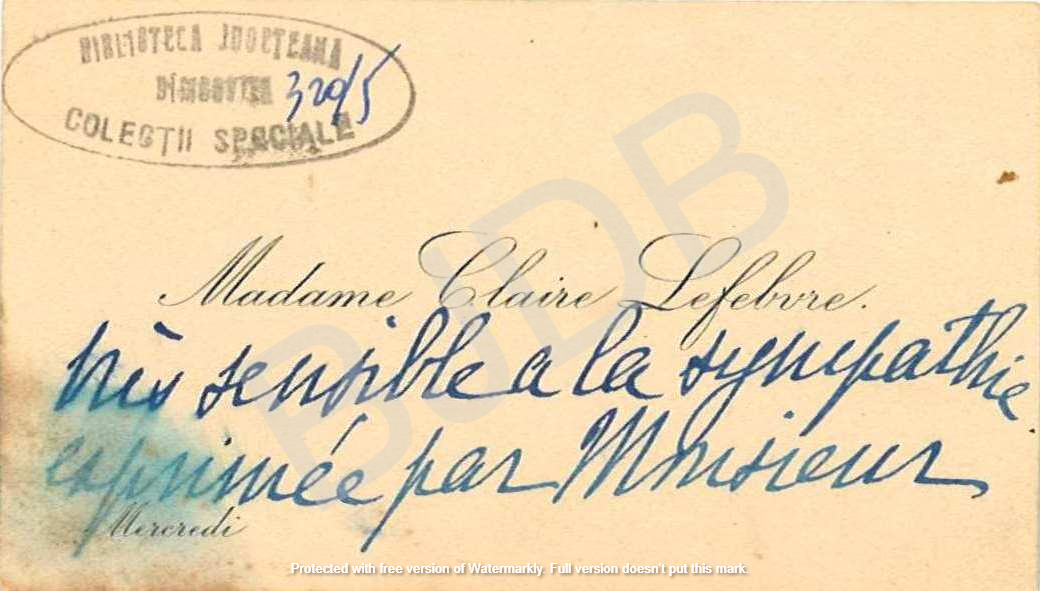 BIBLIOTECA JUDEȚEANA
DÎMBOVIȚA 329/5
COLECȚII SPECIALE
BJDB
Madame Claire Lefebvre.
très sensible a la sympathie
exprimée par Monsieur
Mercredi
Protected with free version of Watermarkly. Full version doesn't put this mark.